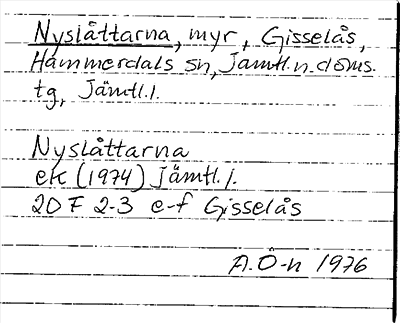 Nyslåttarna, myr, Gisselås,
Hammerdals sn, Jämtl. n. doms.
tg, Jämtl. l.
Nyslåttarna
ek (1974) Jämtl. l.
20 F 2-3 e-f Gisselås
A.Ö-n 1976